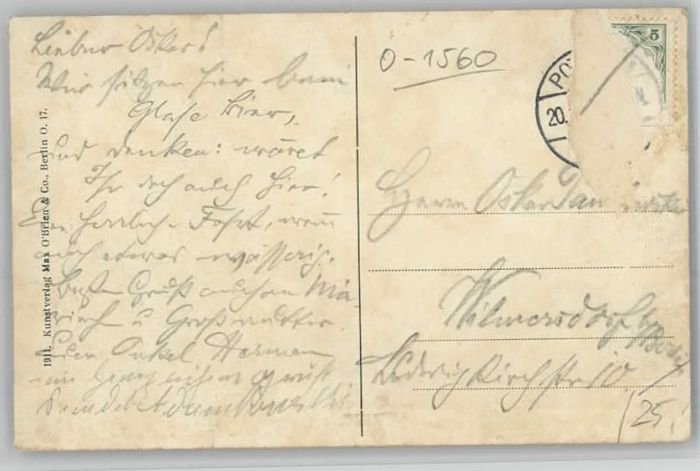 Lieber Oskar!
Wir sitzen hier beim
Glase Bier,
und denken: wäret
Ihr doch auch hier!
Eine herrliche Fahrt, wenn
auch etwas wässerig.
Besten Gruß auch an
u Großmutter
Euer Onkel Hermann
1911. Kunstverlag Max O'Brien & Co., Berlin O. 17.
O-1560
5
PO
20.
Herrn Oskar
Wilmersdorf b/Berlin
Ludwigkirchstr 10
25.